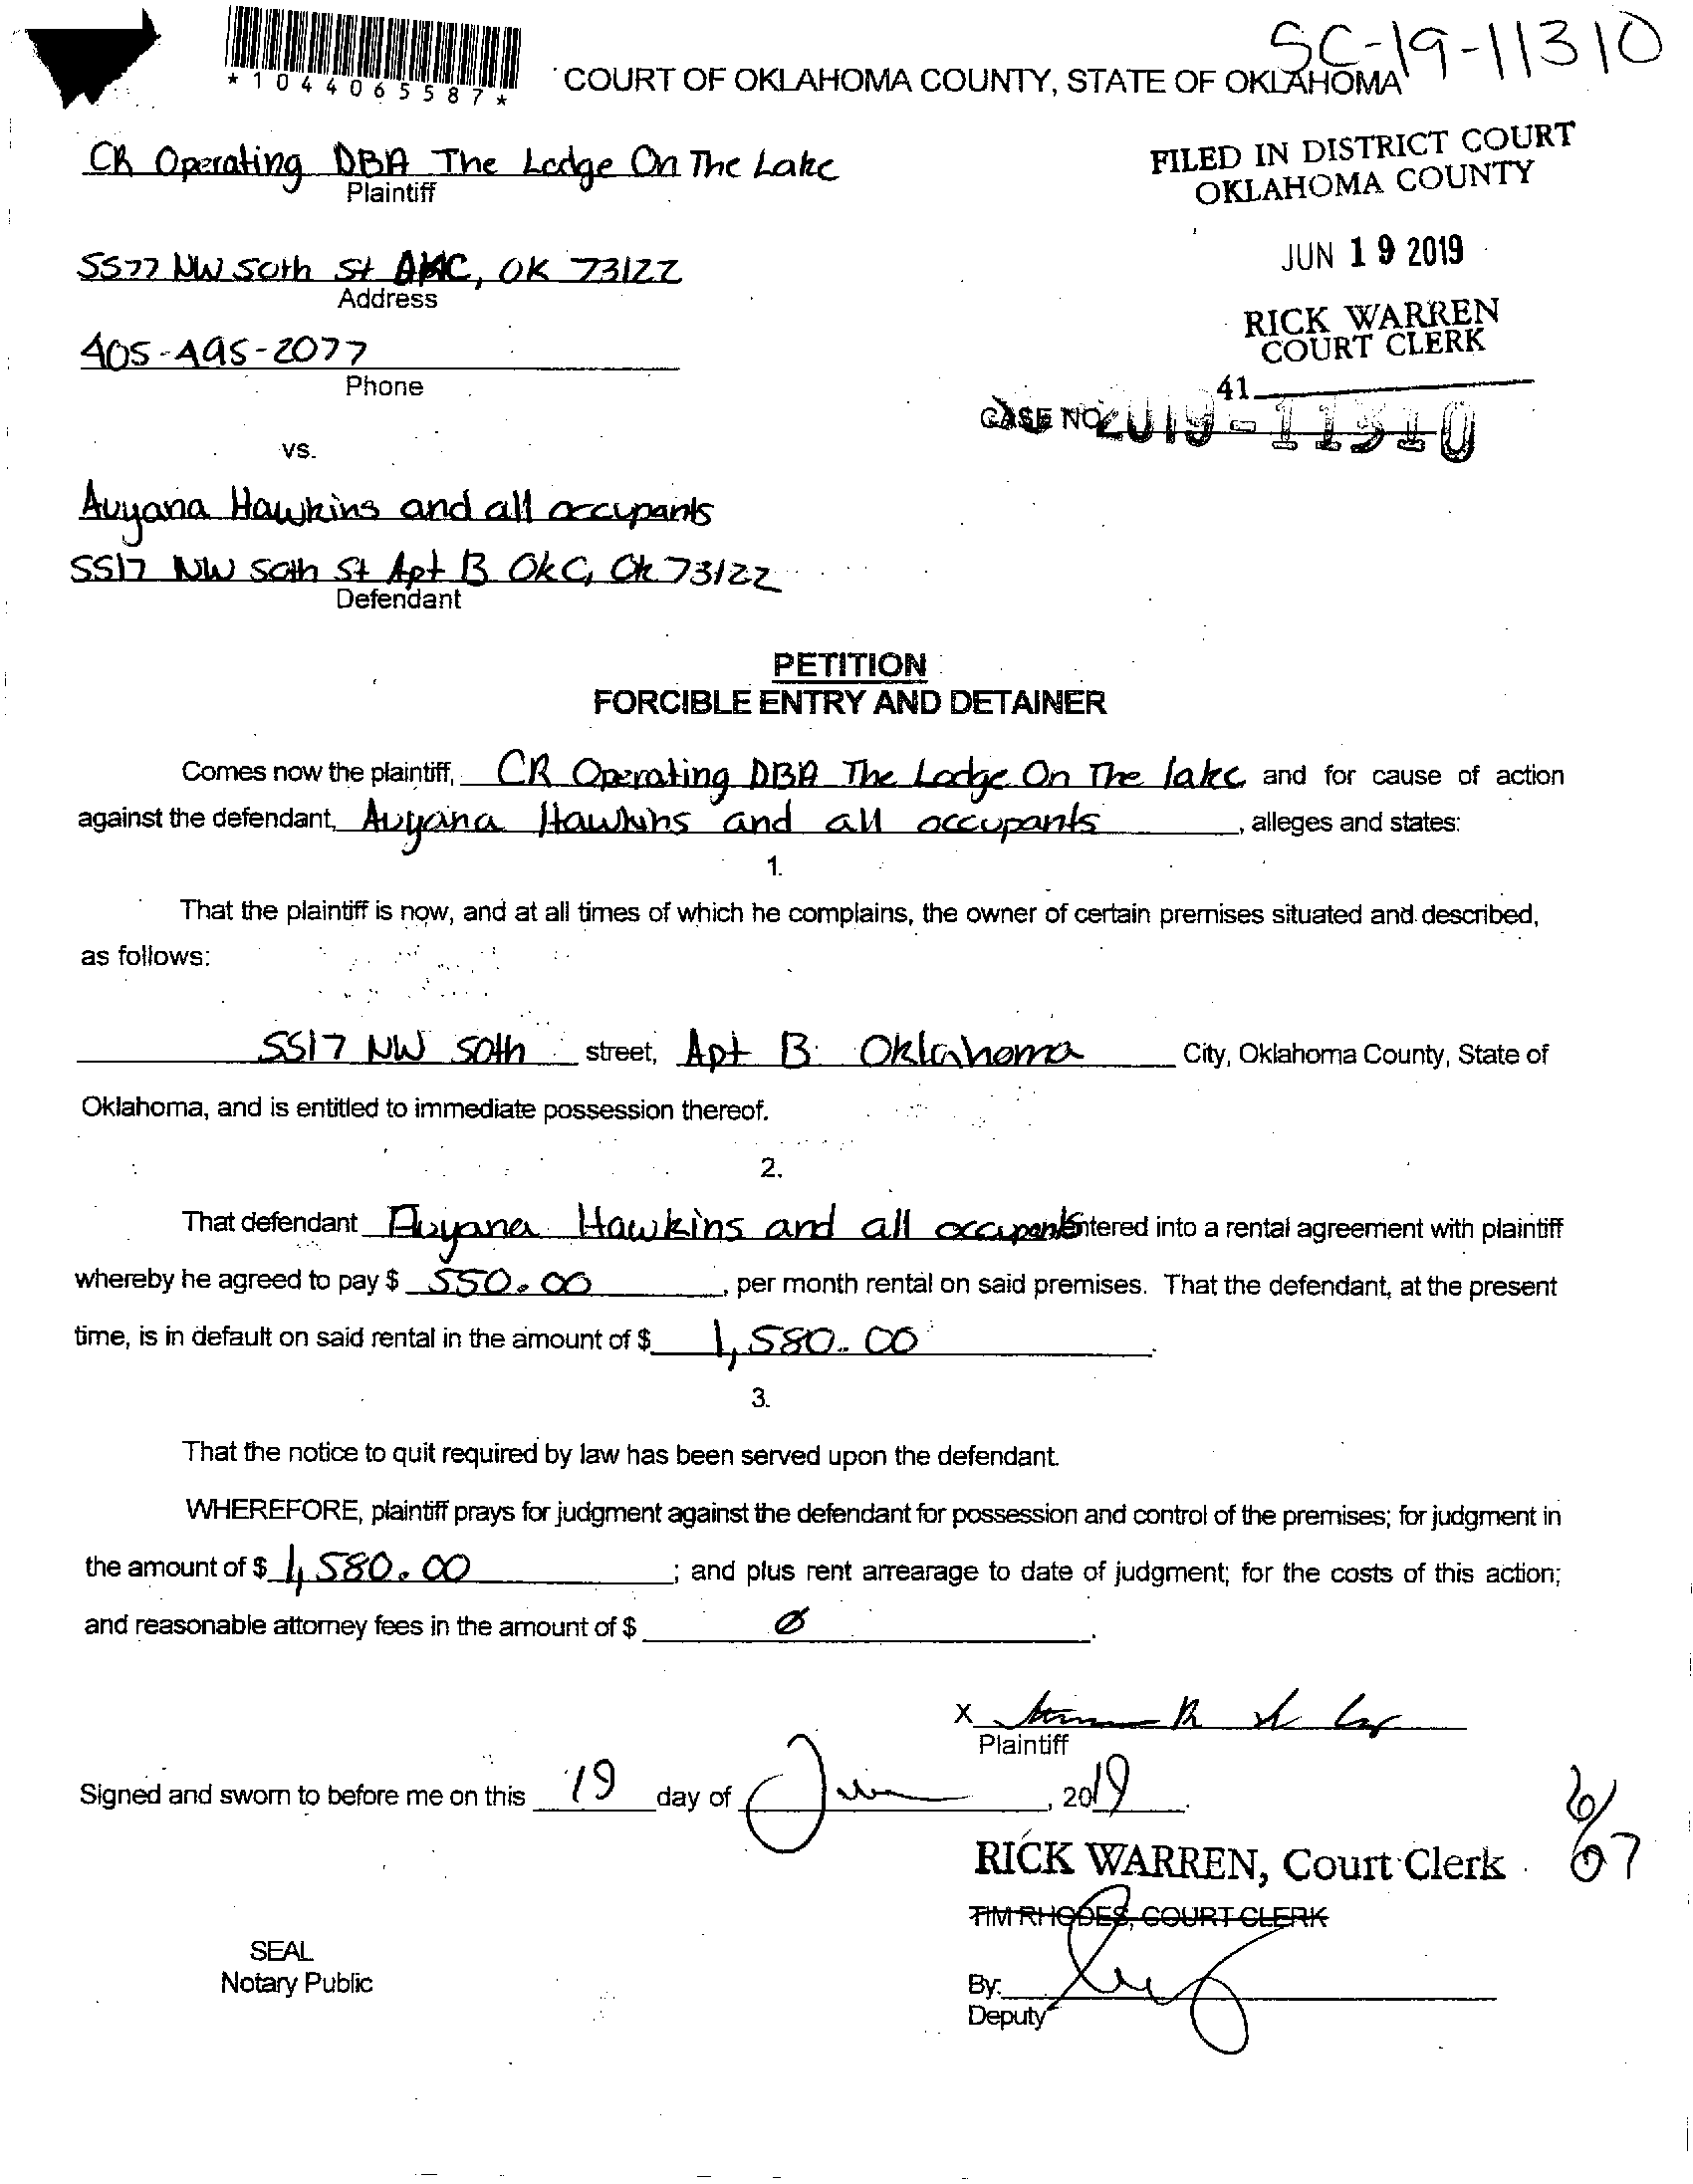 SC-19-11310
*1044065587*
COURT OF OKLAHOMA COUNTY, STATE OF OKLAHOMA
CR Operating DBA The Lodge On The Lake
Plaintiff
FILED IN DISTRICT COURT
OKLAHOMA COUNTY
JUN 19 2019
5577 NW 50th St OKC, OK 73122
Address
RICK WARREN
COURT CLERK
405-495-2077
Phone
41
CASE NO. 2019-11310
vs.
Auyana Hawkins and all occupants
5517 NW 50th St Apt B OKC, Ok 73122
Defendant
PETITION
FORCIBLE ENTRY AND DETAINER
Comes now the plaintiff, CR Operating DBA The Lodge On The lake and for cause of action
against the defendant, Auyana Hawkins and all occupants, alleges and states:
1.
That the plaintiff is now, and at all times of which he complains, the owner of certain premises situated and described,
as follows:
5517 NW 50th street, Apt B Oklahoma City, Oklahoma County, State of
Oklahoma, and is entitled to immediate possession thereof.
2.
That defendant Auyana Hawkins and all occupants entered into a rental agreement with plaintiff
whereby he agreed to pay $ 550.00, per month rental on said premises. That the defendant, at the present
time, is in default on said rental in the amount of $ 1,580.00.
3.
That the notice to quit required by law has been served upon the defendant.
WHEREFORE, plaintiff prays for judgment against the defendant for possession and control of the premises; for judgment in
the amount of $ 1,580.00; and plus rent arrearage to date of judgment; for the costs of this action;
and reasonable attorney fees in the amount of $ Ø.
X
Plaintiff
Signed and sworn to before me on this 19 day of Jun, 2019.
RICK WARREN, Court Clerk
TIM RHODES, COURT CLERK
SEAL
Notary Public
By:
Deputy